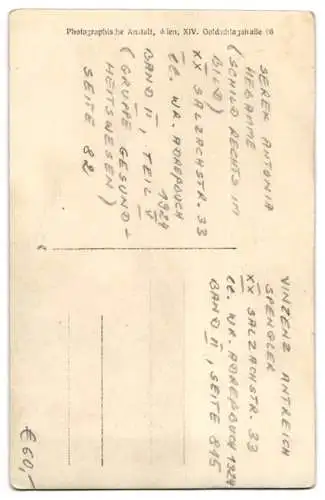 Photographische Anstalt, Wien, XIV. Goldschlagstraße 16
SEREK ANTONIA
HEBAMME
(SCHILD RECHTS IM
BILD)
XX SALZACHSTR. 33
LL. WR. ADREßBUCH
1924
BAND II, TEIL V
(GRUPPE GESUND-
HEITSWESEN)
SEITE 82
VINZENZ ANTREICH
SPENGLER
XX SALZACHSTR. 33
LL. WR. ADREßBUCH 1924
BAND II, SEITE 845
€ 60,-